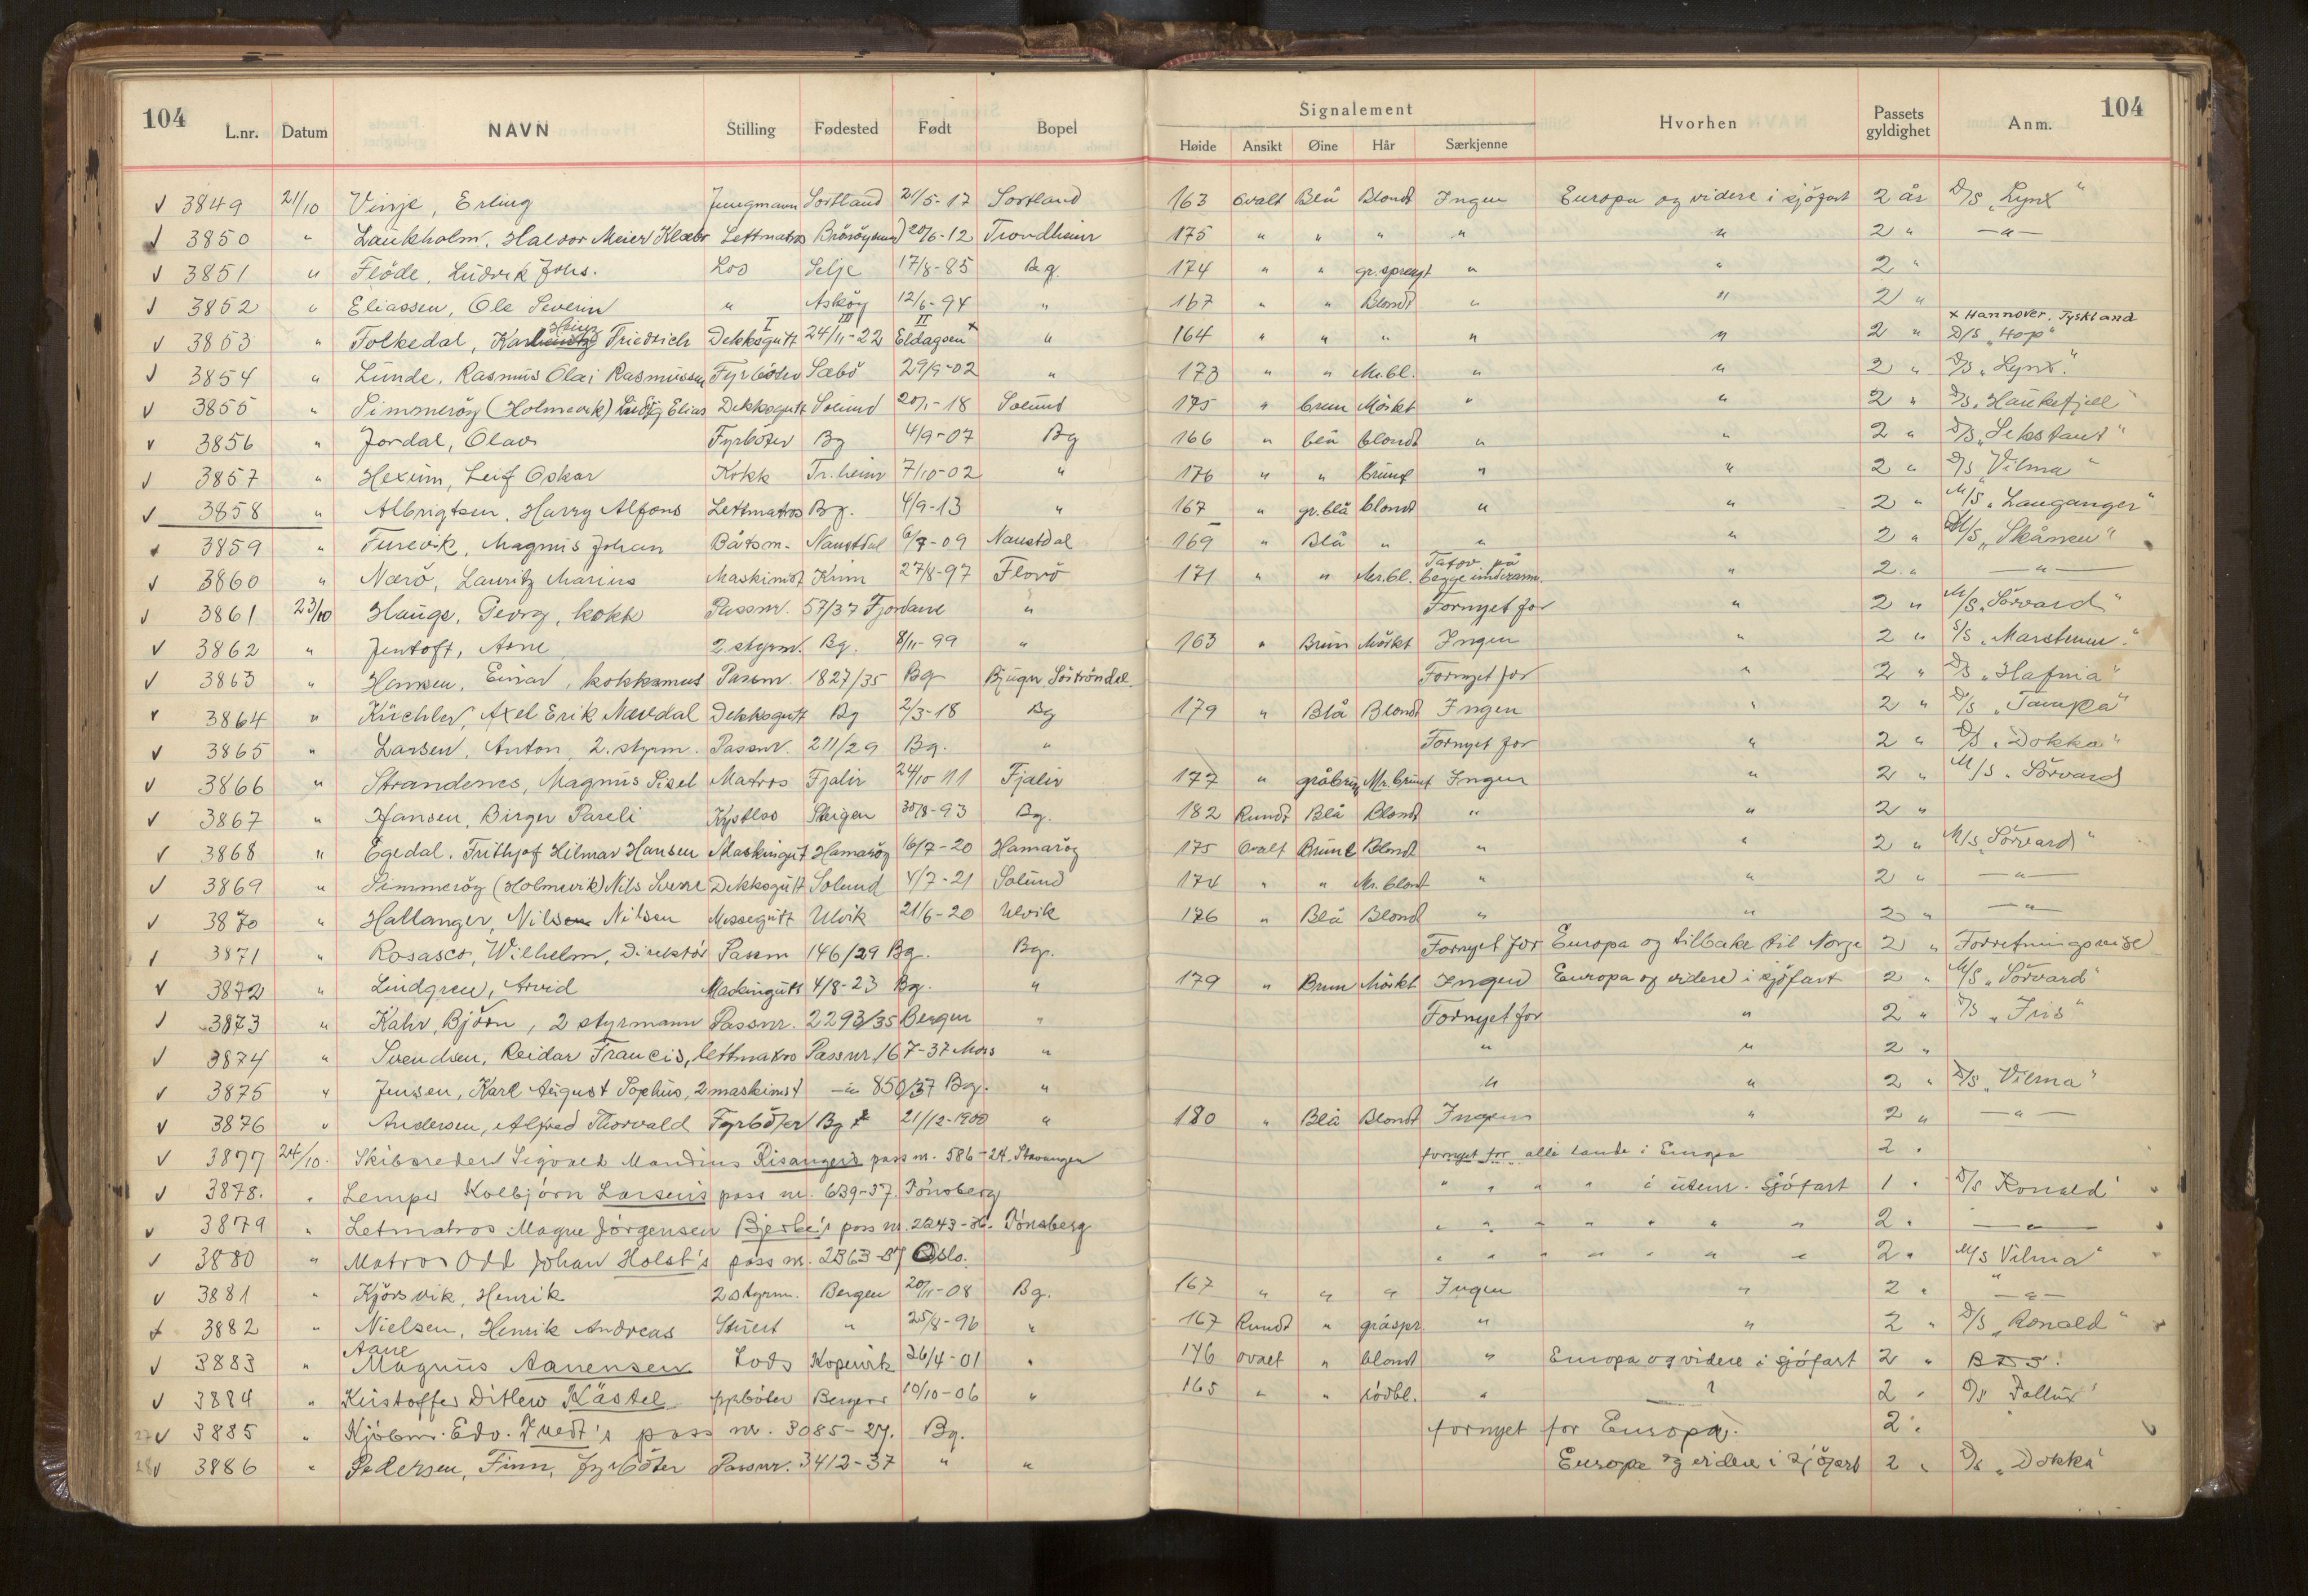 104 104
Signalement
L.nr. Datum NAVN Stilling Fødested Født Bopel Høide Ansikt Øine Hår Særkjenne Hvorhen Passets gyldighet Anm.
✓ 3849 21/10 Vinje, Erling Jungmann Sortland 21/5-17 Sortland 163 Ovalt Blå Blondt Ingen Europa og videre i sjöfart 2 år D/S „Lynx"
✓ 3850 " Laukholm, Haldor Meier Klæbo Lettmatros Brönöysund 20/6-12 Trondheim 175 " " " " " 2 " —"—
✓ 3851 " Flöde, Ludvik Johs. Los Selje 17/8-85 Bg. 174 " " gr.sprengt " " 2 "
✓ 3852 " Eliassen, Ole Severin " Asköy 12/6-94 " 167 " " Blondt " " 2 "
x Hannover, Tyskland
✓ 3853 " Folkedal, Karl Heinz Friedrich Dekksgutt I 24/11-22 III Eldagsen x II " 164 " " " " " 2 " D/S „Hop"
✓ 3854 " Lunde, Rasmus Olai Rasmussen Fyrböter Sæbö 29/9-02 " 173 " " Mr.bl. " " 2 " D/S „Lynx"
✓ 3855 " Simmeröy (Holmevik) Ludvig Elias Dekksgutt Solund 20/1-18 Solund 175 " brun Mörkt " " 2 " D/S „Haukefjell"
✓ 3856 " Jordal, Olav Fyrböter Bg 4/9-07 Bg 166 " blå blondt " " 2 " D/S „Sekstant"
✓ 3857 " Hexum, Leif Oskar Kokk Tr.heim 7/10-02 " 176 " " brunt " " 2 " D/S „Vilma"
✓ 3858 " Albrigtsen, Harry Alfons Lettmatros Bg. 4/9-13 " 167 " gr.blå blondt " " 2 " M/S „Lauganger"
✓ 3859 " Furevik, Magnus Johan Båtsm. Naustdal 6/7-09 Naustdal 169 " Blå " " " 2 " M/S „Skånen"
✓ 3860 " Nærö, Lauritz Marius Maskinist Kinn 27/8-97 Florö 171 " " Mr.bl. Tatov. på begge underarm. " 2 " —"—
✓ 3861 23/10 Hauge, Georg, kokk Passnr. 57/37 Fjordane " Fornyet for " 2 " M/S „Sörvard"
✓ 3862 " Jentoft, Arne 2 styrm. Bg. 8/11-99 " 163 " Brun Mörkt Ingen " 2 " S/S „Marstenen"
✓ 3863 " Hansen, Einar, kokksmat Passnr. 1827/35 Bg Bjugn Söströndel. Fornyet for " 2 " D/S „Hafnia"
✓ 3864 " Küchler, Axel Erik Nævdal Dekksgutt Bg 2/3-18 Bg 179 " Blå Blondt Ingen " 2 " D/S „Tampa"
✓ 3865 " Larsen, Anton, 2. styrm. Passnr. 211/29 Bg. " Fornyet for " 2 " D/S „Dokka"
✓ 3866 " Strandenes, Magnus Sisel Matros Fjaler 24/10-11 Fjaler 177 " gråbrun Mr.brunt Ingen " 2 " M/S „Sörvard
✓ 3867 " Hansen, Birger Pareli Kystlos Steigen 30/8-93 Bg. 182 Rundt Blå Blondt " " 2 "
✓ 3868 " Egedal, Frithjof Hilmar Hansen Maskingutt Hamaröy 16/7-20 Hamaröy 175 Ovalt Brune Blondt " " 2 " M/S „Sörvard"
✓ 3869 " Simmeröy (Holmevik) Nils Sverre Dekksgutt Solund 4/7-21 Solund 174 " " Mr.blondt " " 2 " —"—
✓ 3870 " Hallanger, Nils Nilsen Messegutt Ulvik 21/6-20 Ulvik 176 " Blå Blondt " " 2 " —"—
✓ 3871 " Rosasco, Wilhelm, Direktör Passnr 146/29 Bg. Bg. Fornyet for Europa og tilbake til Norge 2 " Forretningsreise
✓ 3872 " Lindgren, Arvid Maskingutt 4/8-23 Bg. " 179 " Brun Mörkt Ingen Europa og videre i sjöfart 2 " M/S „Sörvard"
✓ 3873 " Kahr, Björn, 2 styrmann Passnr. 2293/35 Bergen " Fornyet for " 2 " D/S „Iris"
✓ 3874 " Svendsen, Reidar Francis, lettmatros Passnr. 167-37 Moss " " " 2 "
✓ 3875 " Jensen, Karl August Sophus, 2 maskinist —"— 850/37 Bg. " " " 2 " D/S „Vilma"
✓ 3876 " Andersen, Alfred Thorvald Fyrböter Bg 21/12-1900 " 180 " Blå Blondt Ingen " 2 " —"—
✓ 3877 24/10. Skibsreder Sigvald Mandius Risanger's pass nr. 586-24. Stavanger fornyet for alle lande i Europa 2 "
✓ 3878. " Lemper Kolbjörn Larsen's pass nr. 639-37. Tönsberg " " " " i utenr. sjöfart 1 " D/S Ronald"
✓ 3879 " Letmatros Magne Jörgensen Bjerke's pass nr. 2243-36. Tönsberg " " " " " " " 2 " —"—
✓ 3880 " Matros Odd Johan Holst's pass nr. 2363-37 Oslo. " " " " " " " 2 " M/S Vilma"
✓ 3881 " Kjörsvik, Henrik 2 styrm. Bergen 20/11-08 Bg. 167 " " " Ingen " 2 " —"—
✓ 3882 " Nielsen, Henrik Andreas Stuert " 25/8-96 " 167 Rundt " gråspr. " " 2 " D/S „Ronald"
✓ 3883 " Aane Magnus Aanensen Lods Kopervik 26/4-01 " 176 ovalt " blondt " Europa og videre i sjöfart 2 " BDS.
✓ 3884 " Kristoffer Ditlew Kästel fyrböter Bergen 10/10-06 " 165 " " rödbl. " " 2 " D/S „Pollux"
✓ 3885 " Kjöbm. Edv. Tvedt's pass nr. 3085-27. Bg. fornyet for Europa. 2 "
✓ 3886 " Pedersen, Finn, fyrböter Passnr. 3412-37 " " Europa og videre i sjöfart 2 " D/S „Dokka"